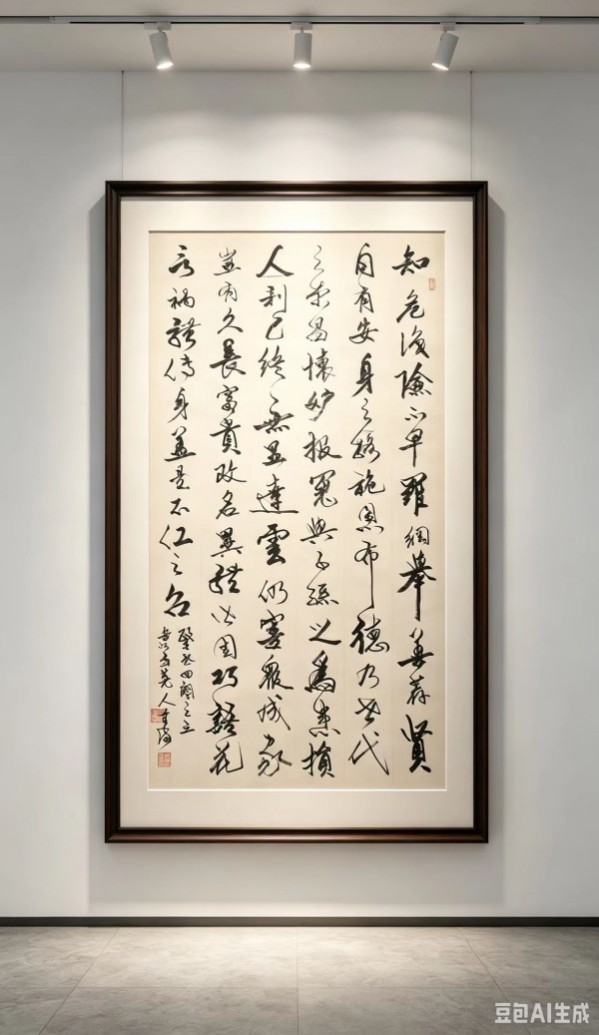 知危識險早羅網舉善薦賢
自有安身之路施恩布德乃世代
之榮昌懷妒報冤與子孫以為患損
人利己終無顯達雲仍害眾成家
豈有久長富貴改名異體皆因巧語花
言禍體傷身蓋是不仁之召
豆包AI生成